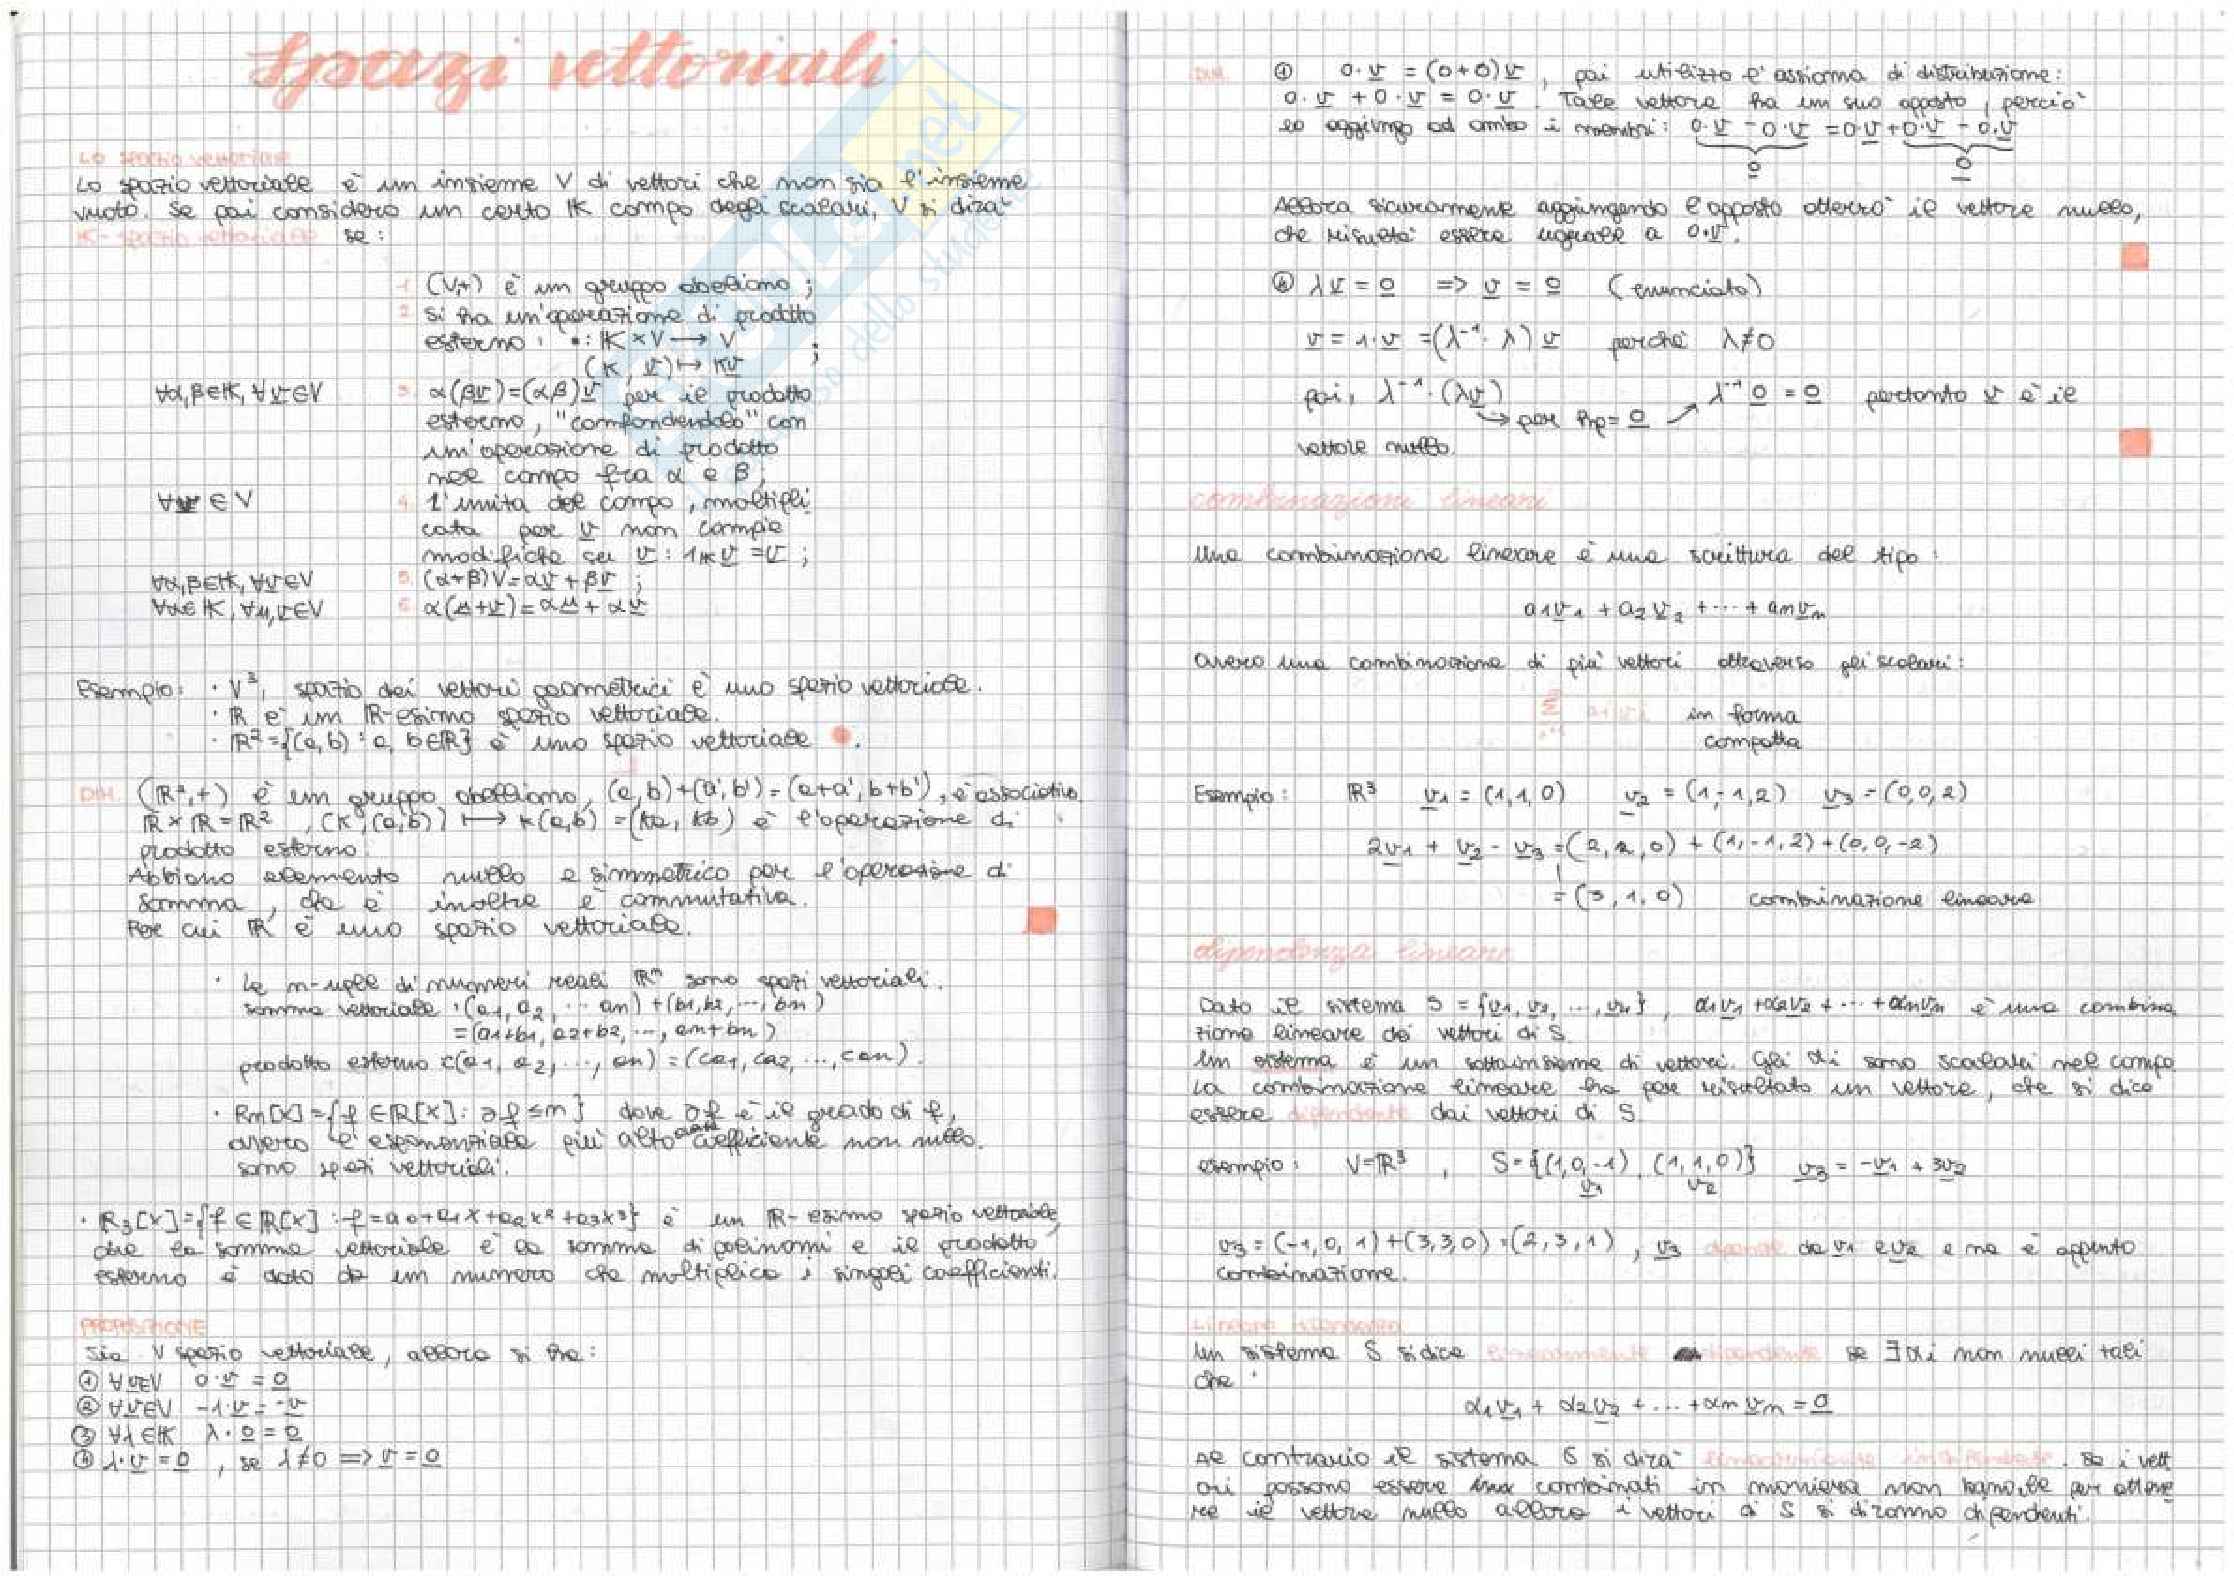 Spazi vettoriali
Lo spazio vettoriale
Lo spazio vettoriale è un insieme V di vettori che non sia l'insieme
vuoto. Se poi considero un certo K campo degli scalari, V si dirà
K-spazio vettoriale se:
1. (V,+) è un gruppo abeliano ;
2. Si ha un'operazione di prodotto
esterno: •: K×V ⟶ V
(k, v) ↦ kv ;
∀α,β∈K, ∀v∈V 3. α(βv)=(αβ)v per il prodotto
esterno, "confondendolo" con
un'operazione di prodotto
nel campo fra α e β;
∀v ∈ V 4. L'unità del campo, moltipli
cata per v non compie
modifiche su v : 1K v = v ;
∀α,β∈K, ∀v∈V 5. (α+β)V=αv+βv ;
∀α∈K, ∀u,v∈V 6. α(u+v)=αu+αv
Esempio: · V³, spazio dei vettori geometrici è uno spazio vettoriale.
· R è un R-esimo spazio vettoriale.
· R²={(a,b) : a, b∈R} è uno spazio vettoriale
DIM. (R²,+) è un gruppo abeliano, (a,b)+(a',b')=(a+a',b+b'), è associativa.
R×R=R², (K,(a,b)) ⟼ k(a,b) =(ka, kb) è l'operazione di
prodotto esterno.
Abbiamo elemento nullo e simmetrico per l'operazione di
somma, che è inoltre è commutativa.
Per cui R è uno spazio vettoriale.
· Le n-uple di numeri reali Rⁿ sono spazi vettoriali.
somma vettoriale :(a1, a2, ... an) +(b1,b2, ..., bn)
=(a1+b1, a2+b2, ..., an+bn)
prodotto esterno c(a1, a2, ..., an) = (ca1, ca2, ..., can).
· Rn[x]={f ∈R[x]: ∂f ≤n} dove ∂f è il grado di f,
ovvero l'esponenziale più alto coefficiente non nullo.
sono spazi vettoriali.
· R3[x]={f ∈R[x] : f=a0+a1x+a2x²+a3x³} è un R-esimo spazio vettoriale,
che la somma vettoriale è la somma di polinomi e il prodotto
esterno è dato da un numero che moltiplica i singoli coefficienti.
PROPOSIZIONE
Sia V spazio vettoriale, allora si ha:
① ∀v∈V 0·v = 0
② ∀v∈V -1·v = -v
③ ∀λ∈K λ·0 = 0
④ λ·v = 0 , se λ≠0 => v = 0
DIM. ① 0·v = (0+0)v , poi utilizzo l'assioma di distribuzione:
0·v + 0·v = 0·v . Tale vettore ha un suo opposto, perciò
lo aggiungo ad ambo i membri: 0·v - 0·v = 0·v + 0·v - 0·v
0 0
Allora sicuramente aggiungendo l'opposto otterrò il vettore nullo,
che risulta essere uguale a 0·v.
④ λv = 0 => v = 0 (enunciato)
v = 1·v =(λ⁻¹·λ)v perché λ≠0
poi, λ⁻¹·(λv) λ⁻¹0 = 0 pertanto v è il
per hp = 0
vettore nullo.
combinazioni lineari
Una combinazione lineare è una scrittura del tipo:
a1v1 + a2v2 + ... + anvn
ovvero una combinazione di più vettori attraverso gli scalari:
Σ aivi in forma
compatta
Esempio: R³ v1 = (1,1,0) v2 = (1,-1,2) v3 = (0,0,2)
2v1 + v2 - v3 = (2,2,0) + (1,-1,2) + (0,0,-2)
= (3,1,0) combinazione lineare
dipendenza lineare
Dato il sistema S = {v1, v2, ..., vn} , α1v1 +α2v2 + ... +αnvn è una combina
zione lineare dei vettori di S.
Un sistema è un sottoinsieme di vettori. Gli αi sono scalari nel campo
La combinazione lineare ha per risultato un vettore, che si dice
essere dipendente dai vettori di S.
esempio: V=R³ , S={(1,0,-1), (1,1,0)} v3 = -v1 + 3v2
v1 v2
v3 = (-1,0,1)+(3,3,0)=(2,3,1) , v3 dipende da v1 e v2 e ne è appunto
combinazione.
Un sistema S si dice se ∃αi non nulli tali
che :
α1v1 + α2v2 + ... + αnvn = 0
Al contrario il sistema S si dirà linearmente indipendente. Se i vett
ori possono essere combinati in maniera non banale per ottene
re il vettore nullo allora i vettori di S si diranno dipendenti.